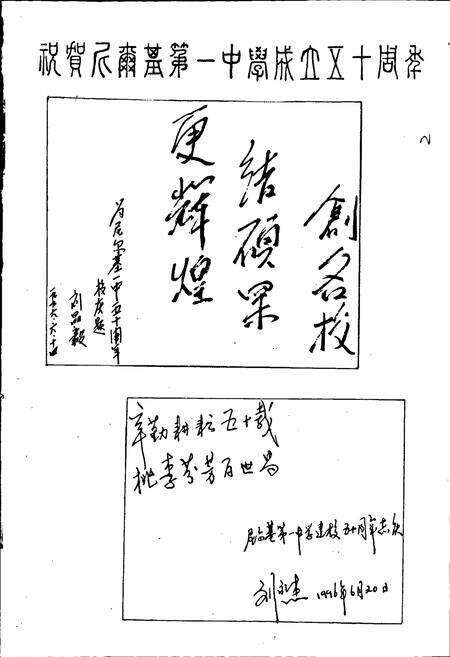 祝贺尼爾基第一中學成立五十周年
創名校
結碩果
更輝煌
为尼尔基一中五十周年
校庆题
刘品毅
一九九六.六.十四
辛勤耕耘五十载
桃李芬芳百世昌
尼尔基第一中学建校五十周年志庆
1996年6月20日